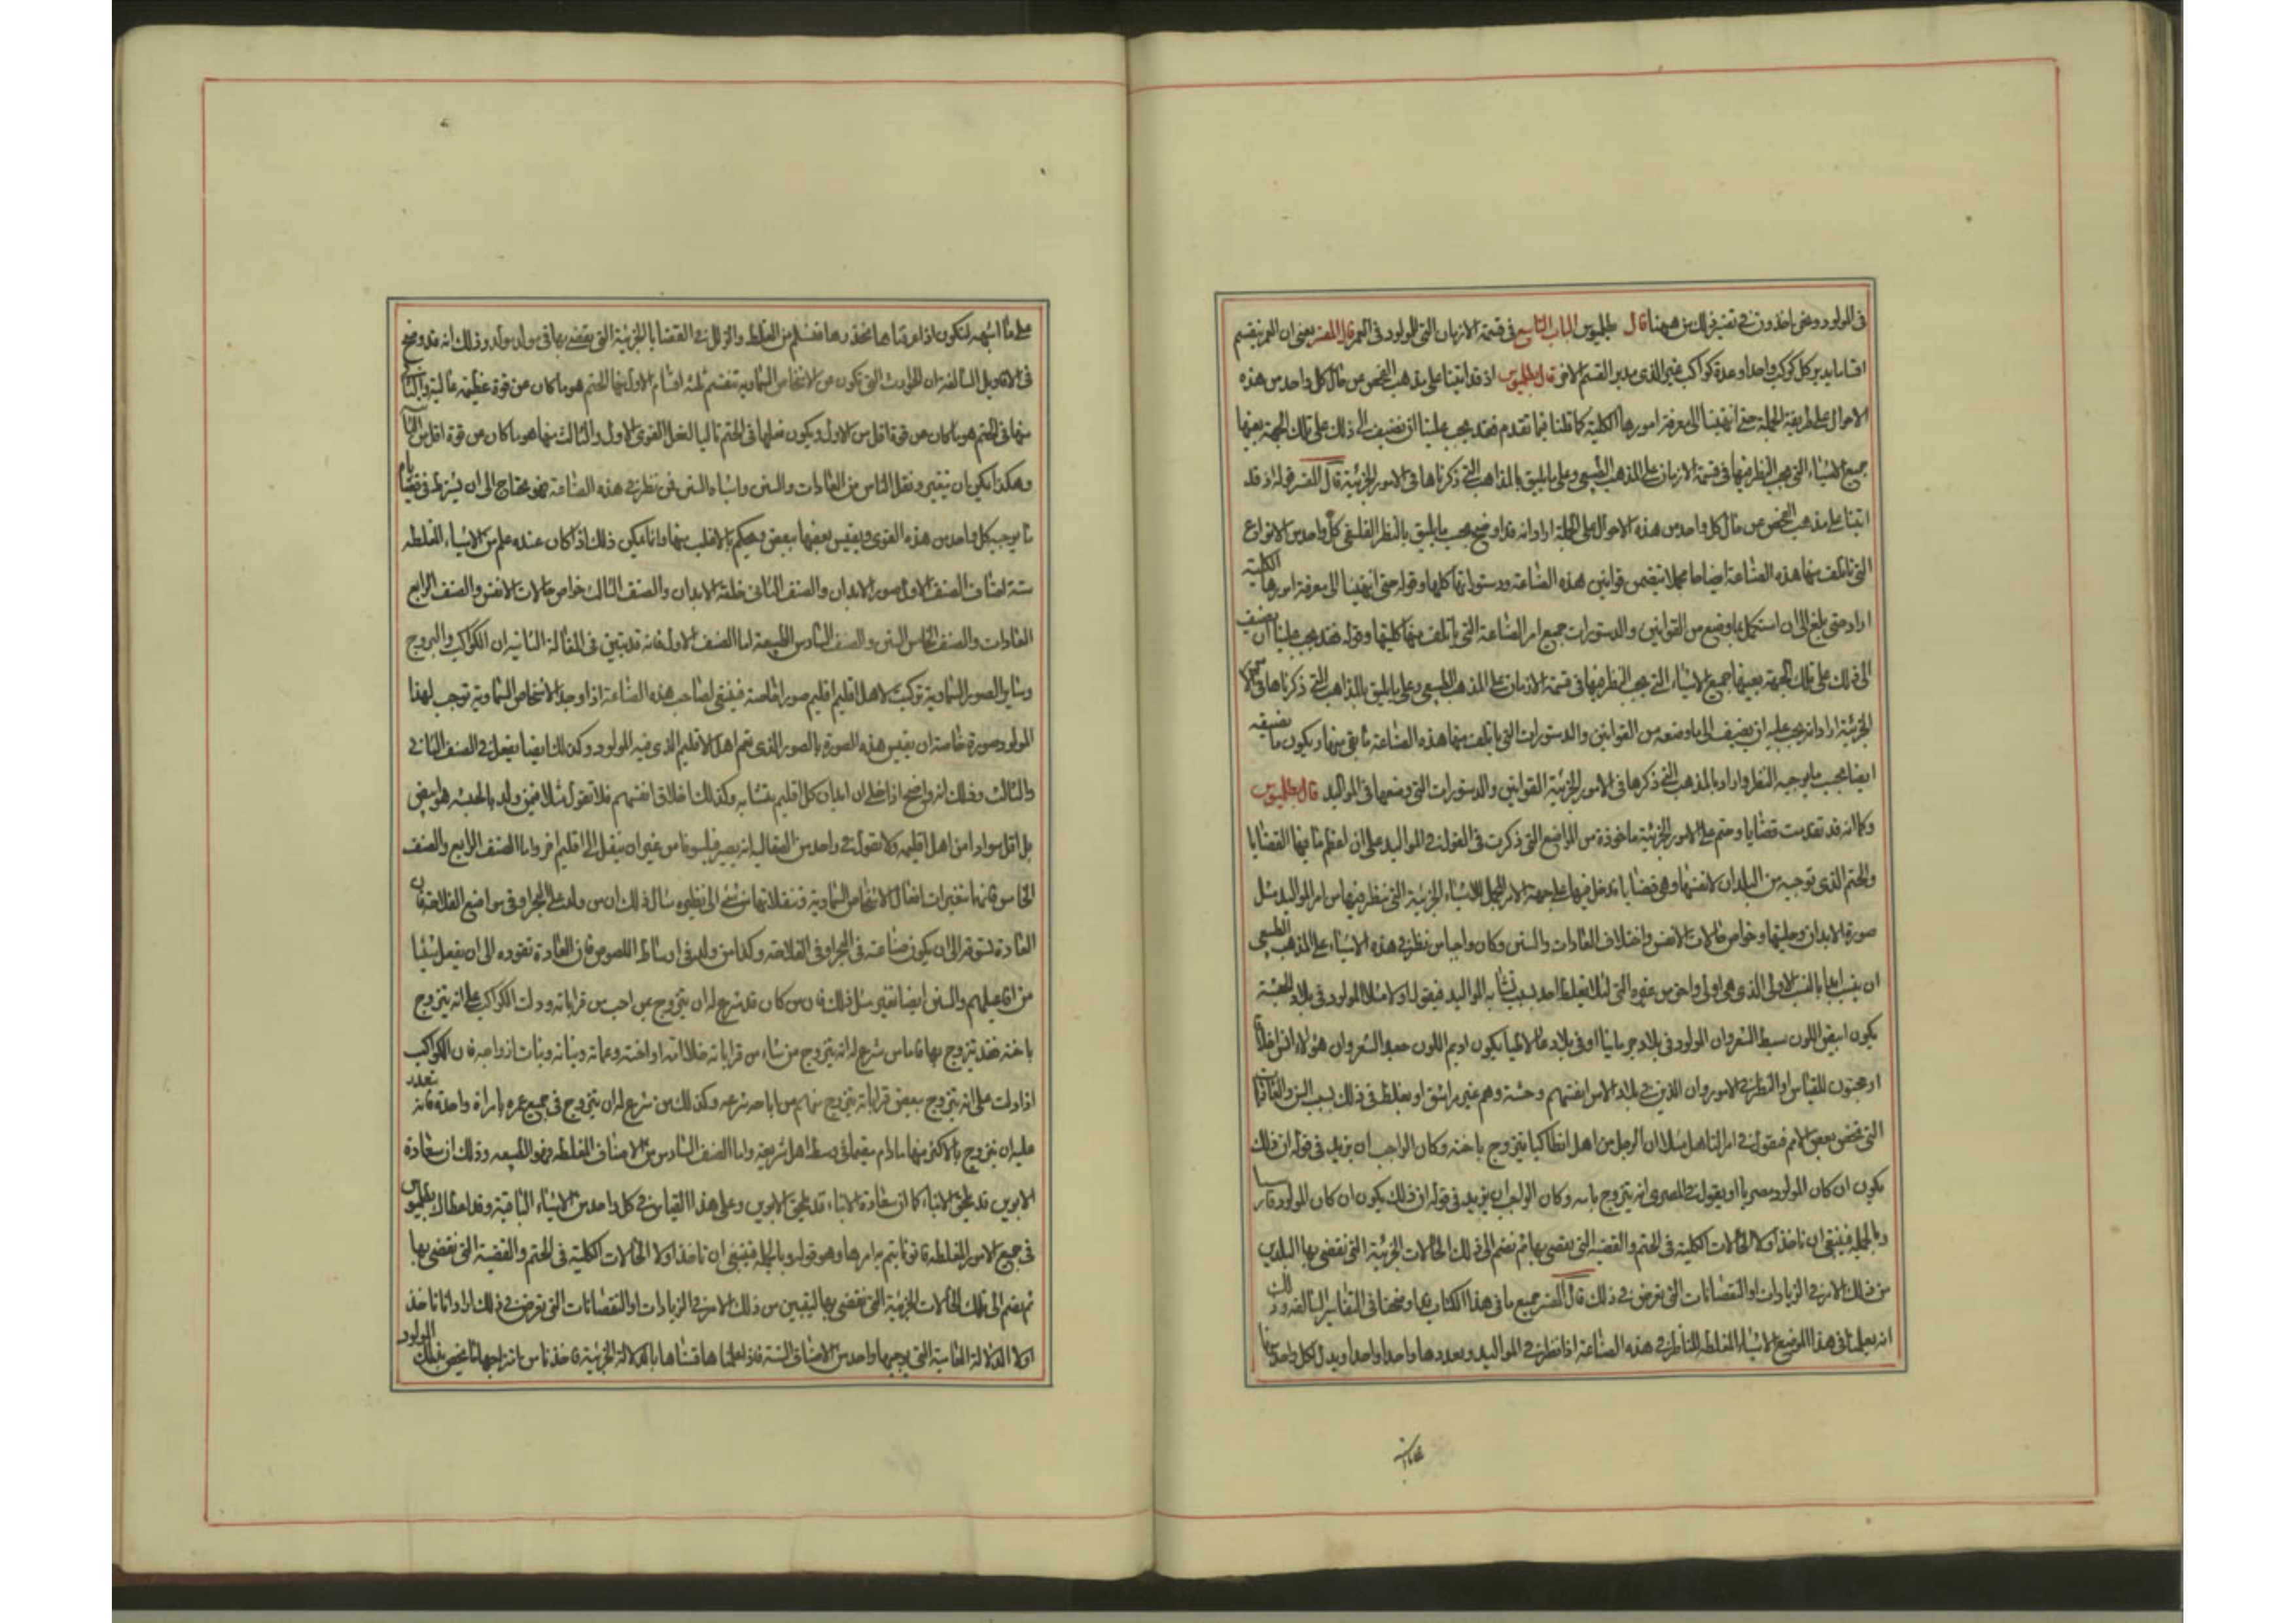 في المولود ونحن اخذون في تفسير ذلك من ههنا قال بطلميوس الباب التاسع في قسمة الازمان التي للمولود في العمر قال المفسر يعني ان العمر ينقسم
اقساما يدبر كل كوكب واحد او عدة كواكب غير الذي يدبر القسم الاخر قال بطلميوس اذ قد اتينا على مذهب الفحص عن حال كل واحد من هذه
الاحوال على طريقة الجملة حتى انتهينا الى معرفة امورها الكلية كما ظننا فيما تقدم فقد يجب علينا ان نضيف الى ذلك على تلك الجهة بعينها
جميع الاشياء التي يجب النظر فيها في قسمة الازمان على المذهب الطبيعي وعلى ما يليق بالمذاهب التي ذكرناها في الامور الجزئية قال المفسر قوله اذ قد
اتينا على مذهب الفحص عن حال كل واحد من هذه الاحوال على الجملة اراد انه قد اوضح بحسب ما يليق بالنظر الفلسفي كل واحد من الانواع
التي تاتلف منها هذه الصناعة ايضاحا مجملا يتضمن قوانين هذه الصناعة ودستوراتها كلها وقوله حتى انتهينا الى معرفة امورها الكلية
اراد حتى بلغ الى ان استكمل بما وضع من القوانين والدستورات جميع امر الصناعة التي ياتلف منها كليتها وقوله فقد يجب علينا ان نضيف
الى ذلك على تلك الجهة بعينها جميع الاشياء التي يجب النظر فيها في قسمة الازمان على المذهب الطبيعي وعلى ما يليق بالمذاهب التي ذكرناها في الامور
الجزئية اراد انه يجب عليه ان يضيف الى ما وضعه من القوانين والدستورات التي ياتلف منها هذه الصناعة ما بقي منها ويكون ما يضيفه
ايضا بحسب ما يوجبه النظر واراد بالمذهب التي ذكرها في الامور الجزئية القوانين والدستورات التي وضعها في المواليد قال بطلميوس
وكما انه قد تقدمت قضايا وحتم على الامور الجزئية ماخوذة من المواضع التي ذكرت في القول في المواليد على ان اعظم ما فيها القضايا
والحتم الذي توجبه من البلدان لانفسها وهي قضايا تدخل فيها على جهة الامر المجمل للاشياء الجزئية التي ينظر فيها من امر المواليد مثل
صورة الابدان وحليتها وخواص حالات الانفس واختلاف العادات والسنن وكان واجبا من نظر في هذه الاشياء على المذهب الطبيعي
ان ينسب ابدا بالسبب الاول الذي هو اولى واحق من غيره التي لئلا يغلط احد بسبب تشابه المواليد فيقول اولا مثلا المولود في بلاد الحبشة
يكون ابيض اللون سبط الشعر وان المولود في بلاد جرمانيا او في بلاد غالاطيا يكون اديم اللون جعد الشعر وان هؤلاء افضل اخلاقا
او محبون للقياس او النظر في الامور وان الذين في بلاد الاس انفسهم وحشة وهم غير راشق او يغلط في ذلك بسبب السنن والعادات
التي تخص بعض الامم فيقول في امر التاهل مثلا ان الرجل من اهل انطاكيا يتزوج باخته وكان الواجب ان يزيد في قوله ان ذلك
يكون ان كان المولود مصريا او يقول في المصري انه يتزوج بامه وكان الواجب ان يزيد في قوله ان ذلك يكون ان كان المولود فارسيا
وبالجملة فينبغي ان ناخذ اولا الحالات الكلية في الحتم والقضية التي يقضي بها ثم نضم الى ذلك الحالات الجزئية التي نقضي بها البلدي
من ذلك الامر في الزيادات او النقصانات التي تعرض في ذلك قال المفسر جميع ما في هذا الكتاب بما وضحنا في التفاسير السالفه وذلك
انه يعلمنا في هذا الموضع الاشياء المغلطة للناظر في هذه الصناعة اذا نظر في المواليد ويعددها واحدا واحدا ويدل لكل واحد منها
على ما اشبهه لنكون اذا عرفناها نحذرها فنسلم من الغلط والزلل في القضايا الجزئية التي يقضى بها في مولد مولد وذلك انه قد وضح
في الاقاويل السالفة ان الحوادث التي تكون عن الاشخاص السماوية تنقسم ثلثة اقسام الاول منها الحتم هو ما كان عن قوة عظيمة عالية والثاني
منها في الحتم هو ما كان عن قوة اقل من الاول ويكون فعلها في الحتم تاليا لفعل القوى الاول والثالث منها هو ما كان عن قوة اقل من الثاني
وهكذا يمكن بان يتغير وتنقل الناس من العادات والسنن واشباه السنن فمن نظر في هذه الصناعة فهو محتاج الى ان يشترط في قضاياه
ما يوجب كل واحد من هذه القوى ويقيس بعضها ببعض ويحكم بالاغلب منها وانما يمكن ذلك اذا كان عنده علم من الاشياء المغلطه
ستة اصناف الصنف الاول صور الابدان والصنف الثاني خلقة الابدان والصنف الثالث خواص حالات الانفس والصنف الرابع
العادات والصنف الخامس السنن والصنف السادس الطبيعة اما الصنف الاول فانه قد تبين في المقالة الثانيه ان الكواكب والبروج
وسائر الصور السماوية تركبت لاهل اقليم اقليم صورا خاصة فينبغي لصاحب هذه الصناعة اذا وجد الاشخاص السماوية توجب لهذا
المولود صورة خاصة ان يقيس هذه الصورة بالصور الذي تعم اهل الاقليم الذي فيه المولود وكذلك ايضا يفعل في الصنف الثاني
والثالث وذلك انه واضح اذا خلي ان ابدان كل اقليم يتشابه وكذلك اخلاق انفسهم فلا تقول مثلا فيمن ولد بالحبشه هو ابيض
بل اقل سوادا من اهل اقليمه ولا تقول في واحد من الصقالبه انه يصير فيلسوفا من غير ان ينتقل الى اقليم اخر واما الصنف الرابع والصنف
الخامس فانهما مغيران افعال الاشخاص السماوية وتنقلانهما من شئ الى نظيره مثال ذلك ان من ولد على البحر او في مواضع الفلاحة فان
العادة تسوقه الى ان يكون صناعته في البحر او في الفلاحة وكذا من ولد في اوساط اللصوص فان العادة تقوده الى ان يفعل شيئا
من افاعيلهم والسنن ايضا تغير مثل ذلك فان من كان قد شرع له ان يتزوج عن احب من قراباته ودلت الكواكب على انه يتزوج
باخته فقد يتزوج بها فاما من شرع له انه يتزوج من شاء من قراباته خلا امه او اخته وعماته وبناته وبنات ازواجه فان الكواكب
اذا دلت على انه يتزوج ببعض قراباته يتزوج منهم من اباحه شرعه وكذلك من شرع له ان يتزوج في جميع عمره بامراة واحدة فانه يتعذر
عليه ان يتزوج بالاكثر منها ما دام مقيما في وسط اهل شريعته واما الصنف السادس من الاصناف المغلطه فهو الطبيعه وذلك ان سعادة
الابوين قد تلحق الابناء كما ان سعادة الابناء قد تلحق الابوين وعلى هذا القياس في كل واحد من الاشياء الباقية وقد اعطاك بطلميوس
في جميع الامور المغلطه قانونا يتم به امرها وهو قوله وبالجملة فينبغي ان ناخذ اولا الحالات الكلية في الحتم والقضية التي نقضي بها
ثم نضم الى تلك الحالات الجزئية التي نقضي بها ليتبين من ذلك الامر في الزيادات او النقصانات التي تعرض في ذلك اراد انا ناخذ
اولا الدلالة العامية التي يوجبها واحد من الاصناف الستة فاذا علمناها قسناها بالدلالة الجزئية فناخذ من امتزاجهما ما يخص بذلك المولود